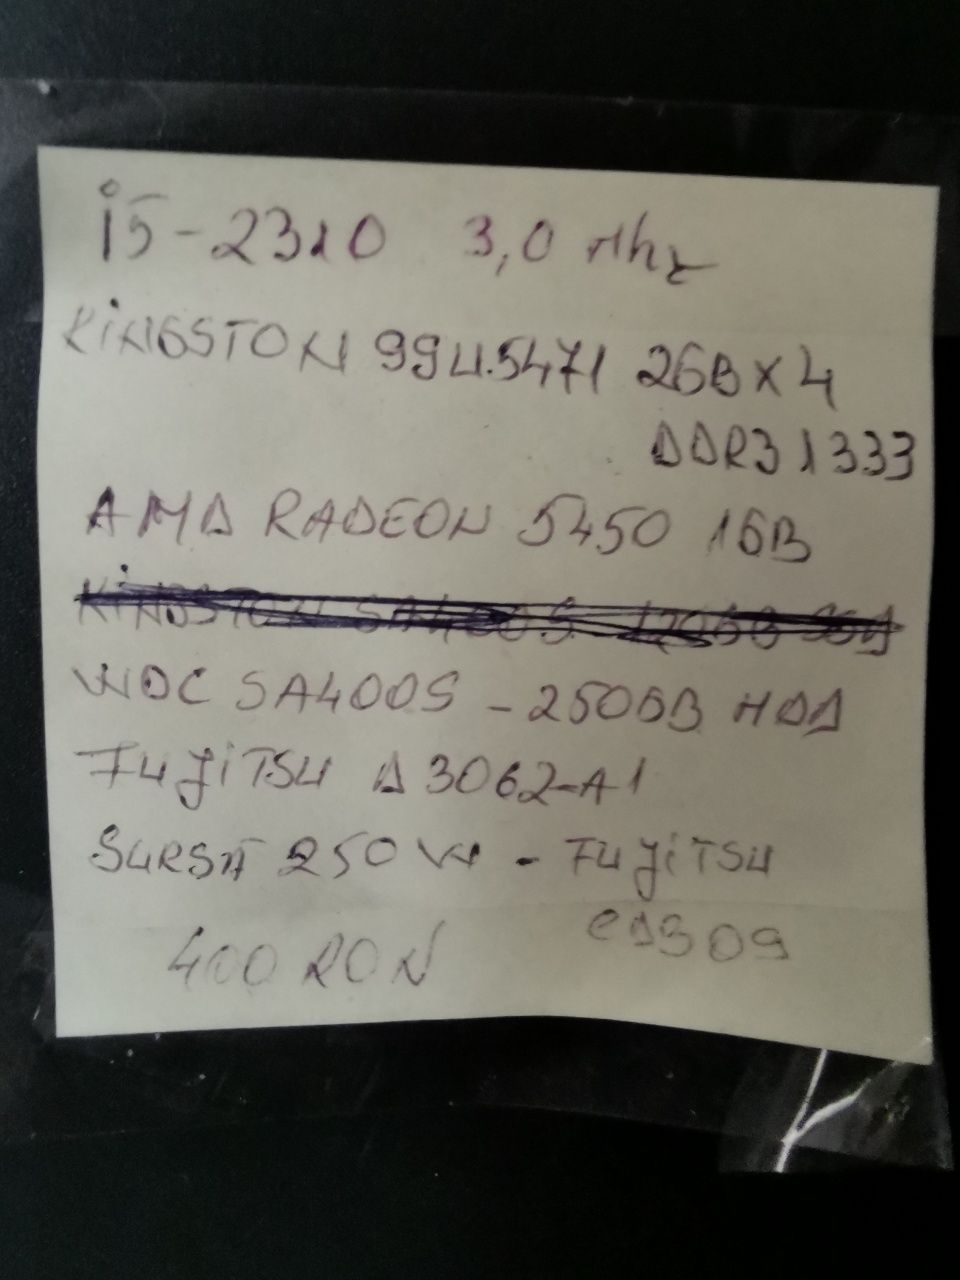 i5-2310 3,0 Mhz
KiNGSTON 9945471 2GB X 4
DDR3 1333
AMD RADEON 5450 1GB
KiNGSTON SA400S 120GB SSD
WDC SA400S - 250GB HDD
FUJiTSU D3062-A1
SURSĂ 250W - FUJiTSU
400 RON